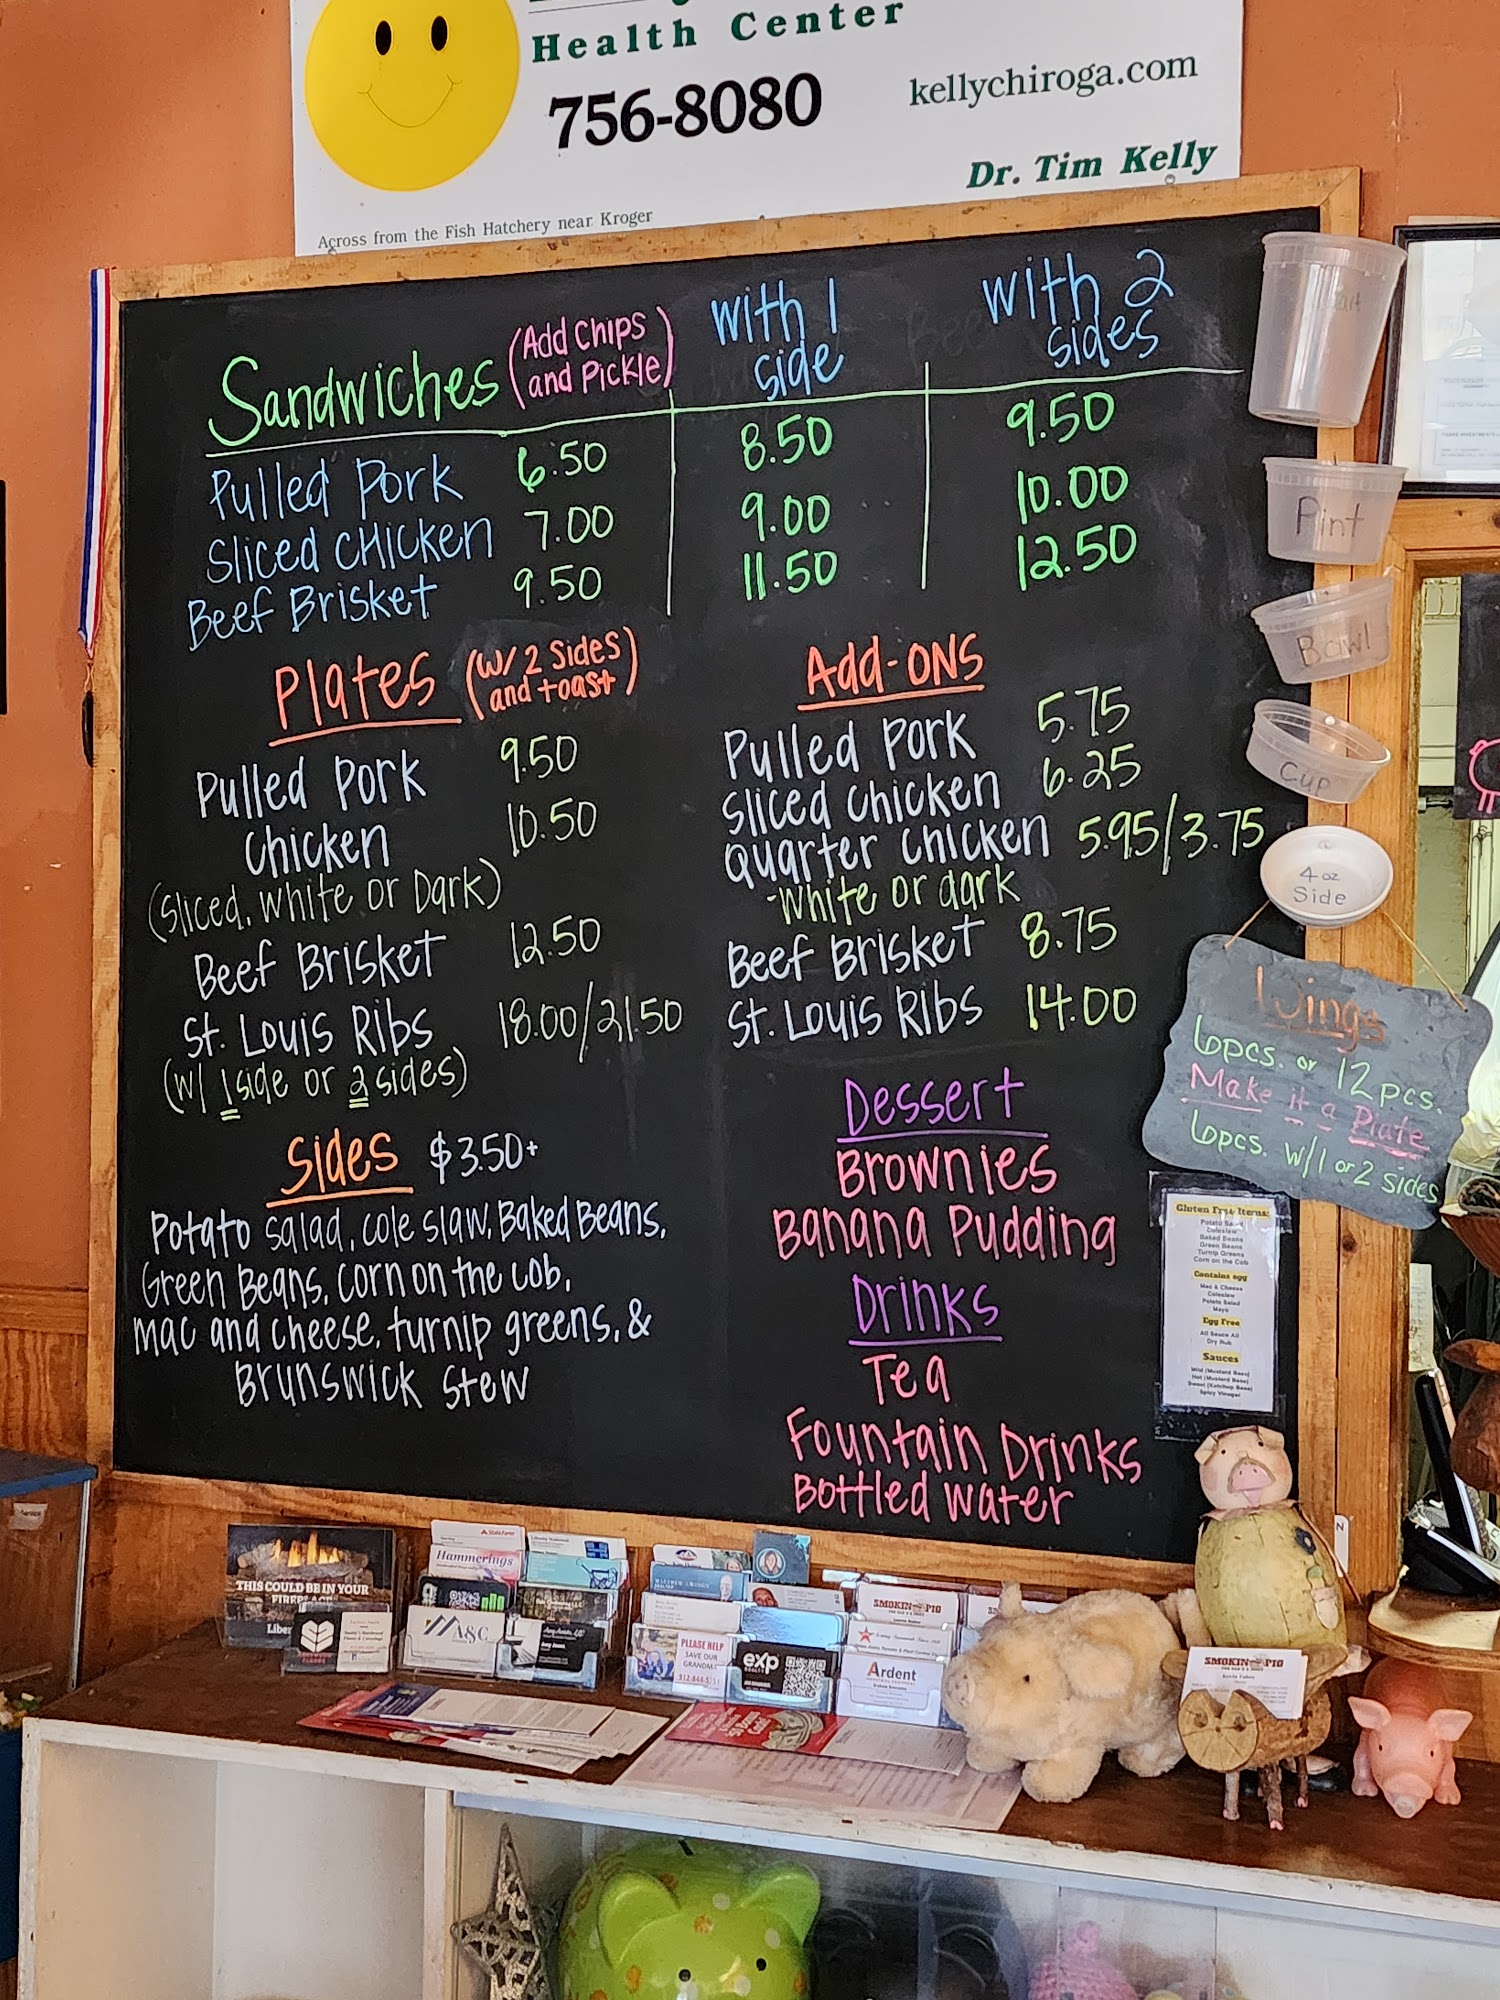 Health Center
756-8080
kellychiroga.com
Dr. Tim Kelly
Across from the Fish Hatchery near Kroger
Sandwiches (Add Chips and Pickle) with 1 side with 2 sides
Pulled Pork 6.50 8.50 9.50
Sliced Chicken 7.00 9.00 10.00
Beef Brisket 9.50 11.50 12.50
Plates (w/ 2 Sides and toast)
Pulled Pork 9.50
Chicken 10.50
(Sliced, White or Dark)
Beef Brisket 12.50
St. Louis Ribs 18.00/21.50
(w/ 1 side or 2 sides)
Sides $3.50+
Potato Salad, Cole Slaw, Baked Beans,
Green Beans, Corn on the Cob,
Mac and Cheese, turnip greens, &
Brunswick Stew
Add-ONS
Pulled Pork 5.75
Sliced Chicken 6.25
Quarter Chicken 5.95/3.75
-White or dark
Beef Brisket 8.75
St. Louis Ribs 14.00
Dessert
Brownies
Banana Pudding
Drinks
Tea
Fountain Drinks
Bottled Water
Pint
Bowl
Cup
4 oz
Side
Wings
6pcs. or 12pcs.
Make it a Plate
6pcs. w/1 or 2 sides
Gluten Free Items:
Potato Salad
Coleslaw
Baked Beans
Green Beans
Turnip Greens
Corn on the Cob
Contains egg
Mac & Cheese
Coleslaw
Potato Salad
Mayo
Egg Free
All Sauce All
Dry Rub
Sauces
Mild (Mustard Base)
Hot (Mustard Base)
Sweet (Ketchup Base)
Spicy Vinegar
THIS COULD BE IN YOUR
FIREPLACE
State Farm
Hammerings
A&C
PLEASE HELP
SAVE OUR
GRANDMA
exp
SMOKIN PIG
Ardent
SMOKIN PIG